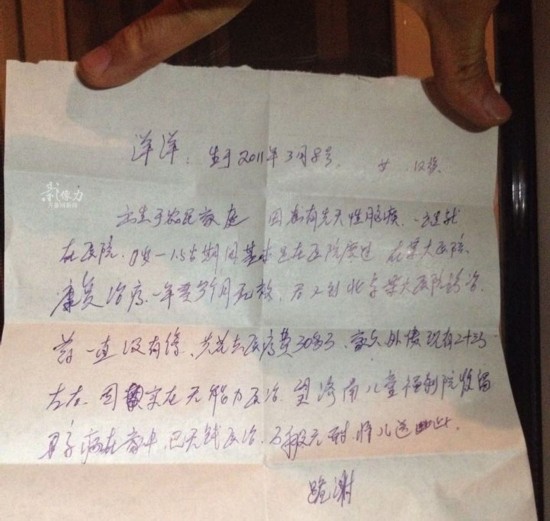 洋洋，生于2011年3月8号， 女，12点
影像力
出生于农民家庭 因患有先天性脑瘫，一直就
在医院，0岁—1.5岁期间基本是在医院度过 在某大医院
康复治疗，一年零3个月无效，后又到北京某大医院诊治
药一直没有停，共花去医疗费30多万，家欠外债现有二十多万
左右，因家实在无能力医治，望济南儿童福利院收留
孩子病在 ，已无钱医治，万般无耐 将儿送
跪谢